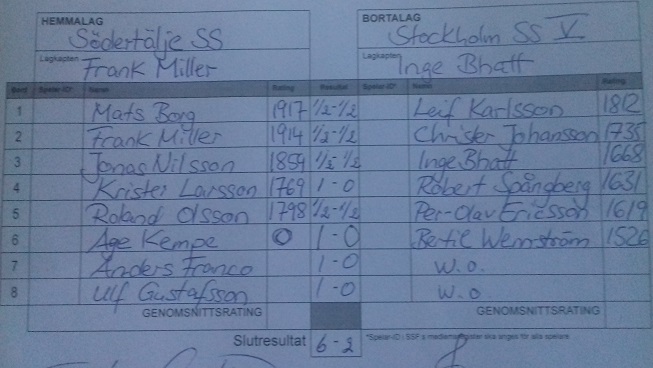 HEMMALAG BORTALAG
Södertälje SS Stockholm SS V
Lagkapten Frank Miller Lagkapten Inge Bhatt
Bord Spelar-ID* Namn Rating Resultat Spelar-ID* Namn Rating
1 Mats Borg 1917 1/2-1/2 Leif Karlsson 1812
2 Frank Miller 1914 1/2-1/2 Christer Johansson 1735
3 Jonas Nilsson 1859 1/2-1/2 Inge Bhatt 1668
4 Krister Larsson 1769 1-0 Robert Spångberg 1631
5 Roland Olsson 1798 1/2-1/2 Per-Olav Ericsson 1619
6 Åge Kempe 0 1-0 Bertil Wernström 1526
7 Anders Franco 1-0 W.O.
8 Ulf Gustafsson 1-0 W.O
GENOMSNITTSRATING GENOMSNITTSRATING
Slutresultat 6-2 *Spelar-ID i SSF:s medlemsregister ska anges för alla spelare